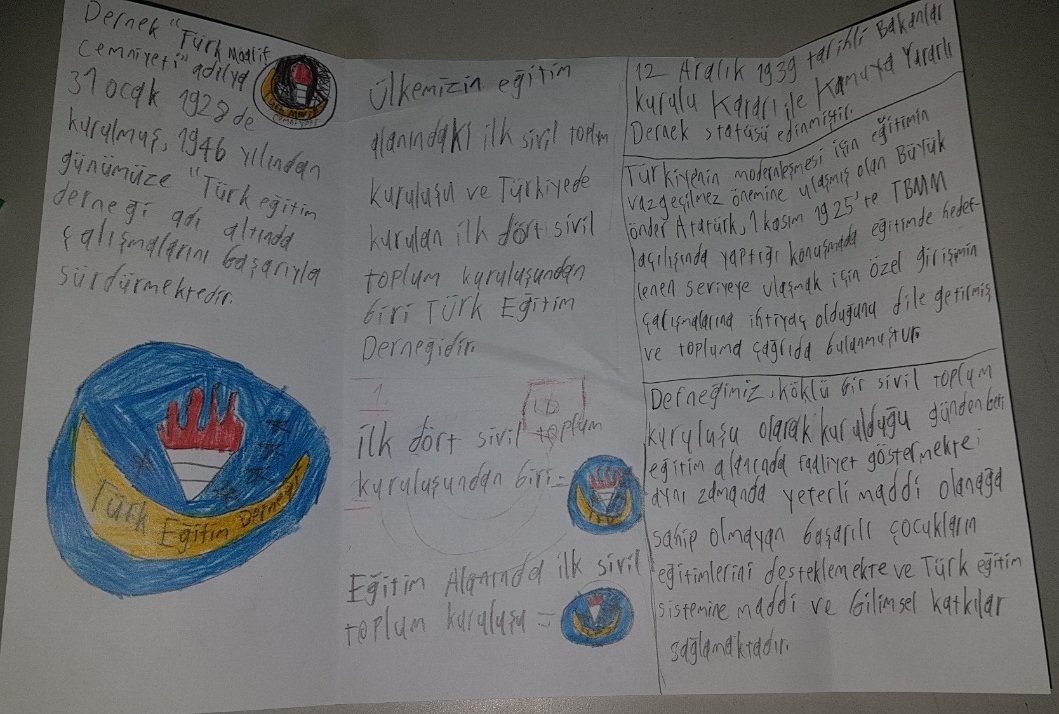 Dernek "Türk Maarif
Cemniyeti" adıyla
31 ocak 1928 de
kurulmuş, 1946 yılından
günümüze "Türk eğitim
derneği adı altında
çalışmalarını başarıyla
sürdürmektedir.
Türk Eğitim Derneği
Ülkemizin eğitim
alanındaki ilk sivil toplum
kuruluşu ve Türkiyede
kurulan ilk dört sivil
toplum kuruluşundan
biri Türk Eğitim
Dernegidir.
1.
ilk dört sivil toplum
kuruluşundan biri =
Eğitim Alanında ilk sivil
toplum kuruluşu =
12 Aralık 1939 tarihli Bakanlar
kurulu Kararı ile Kamuya Yararlı
Dernek statüsü edinmiştir.
Türkiyenin modernleşmesi için eğitimin
vazgeçilmez önemine ulaşmış olan Büyük
önder Atatürk, 1 kasım 1925'te TBMM
açılışında yaptığı konuşmada eğitimde hedef-
lenen seviyeye ulaşmak için özel girişimin
çalışmalarına ihtiyaç olduğunu dile getirmiş
ve topluma çağrıda bulunmuştur.
Derneğimiz, köklü bir sivil toplum
kuruluşu olarak kurulduğu günden beri
eğitim alanada faaliyet göstermekte;
aynı zamanda yeterli maddi olanağa
sahip olmayan başarılı çocukların
eğitimlerini desteklemekte ve Türk eğitim
sistemine maddi ve bilimsel katkılar
sağlamaktadır.